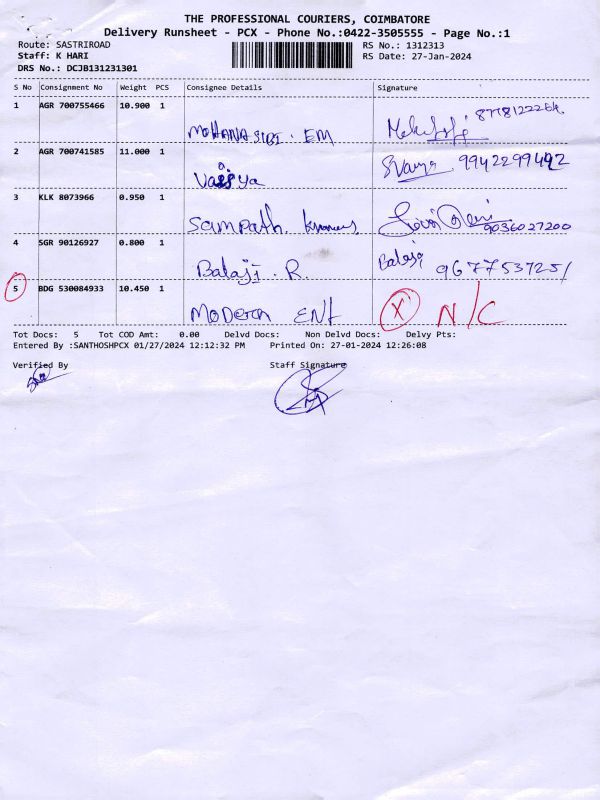 THE PROFESSIONAL COURIERS, COIMBATORE
Delivery Runsheet - PCX - Phone No.:0422-3505555 - Page No.:1
Route: SASTRIROAD
Staff: K HARI
DRS No.: DCJB131231301
RS No.: 1312313
RS Date: 27-Jan-2024
S No Consignment No Weight PCS Consignee Details Signature
1 AGR 700755466 10.900 1 MOHANA SIBI . EM
2 AGR 700741585 11.000 1 9942299492
3 KLK 8073966 0.950 1 Sampath. 9036027200
4 SGR 90126927 0.800 1 Balaji . R. Balaji 9677537251
5 BDG 530084933 10.450 1 MODERN ENT X N/C
Tot Docs: 5 Tot COD Amt: 0.00 Delvd Docs: Non Delvd Docs: Delvy Pts:
Entered By :SANTHOSHPCX 01/27/2024 12:12:32 PM Printed On: 27-01-2024 12:26:08
Verified By Staff Signature